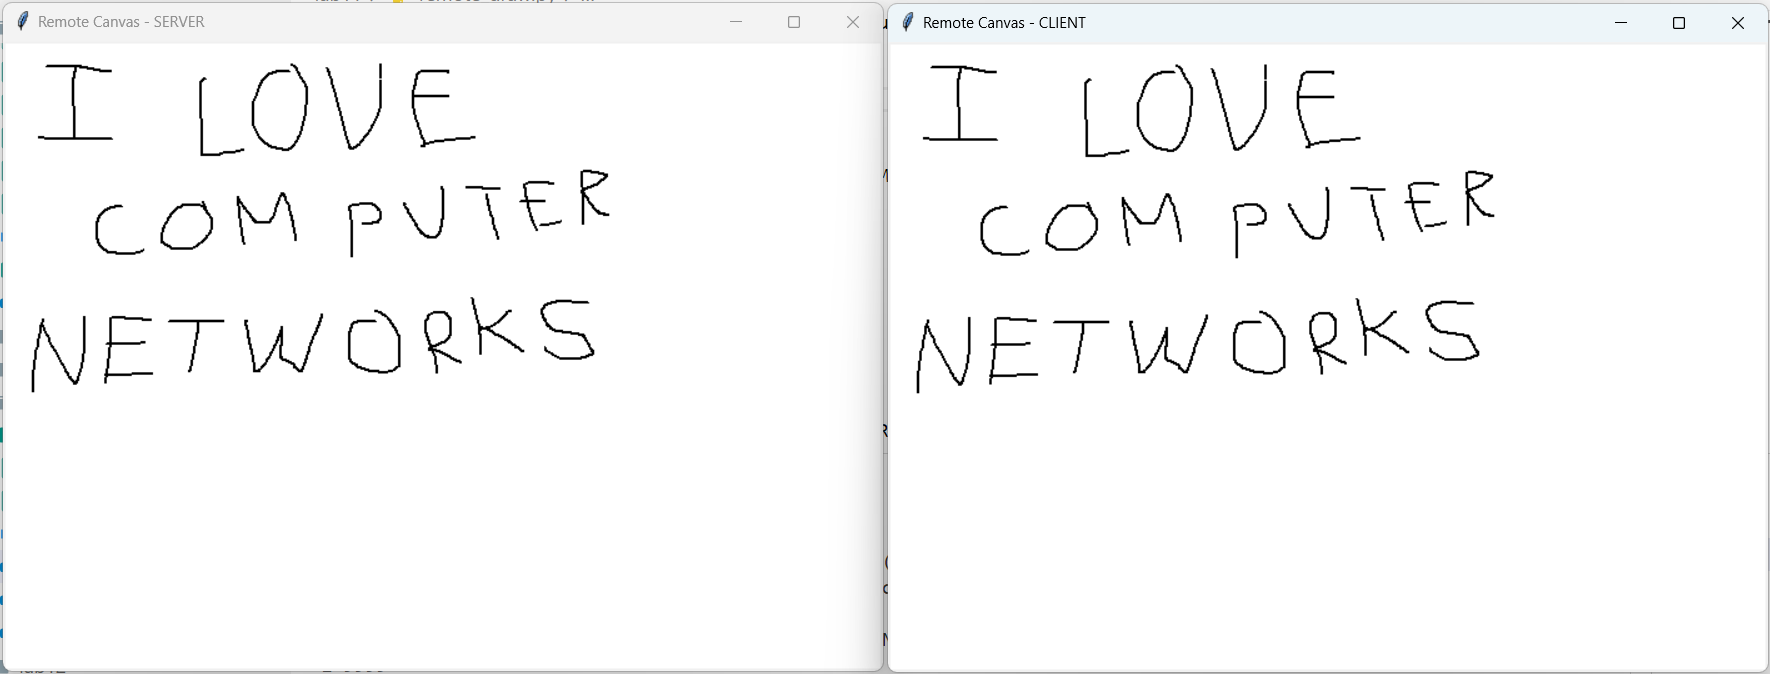 Remote Canvas - SERVER
I LOVE
COMPUTER
NETWORKS
Remote Canvas - CLIENT
I LOVE
COMPUTER
NETWORKS